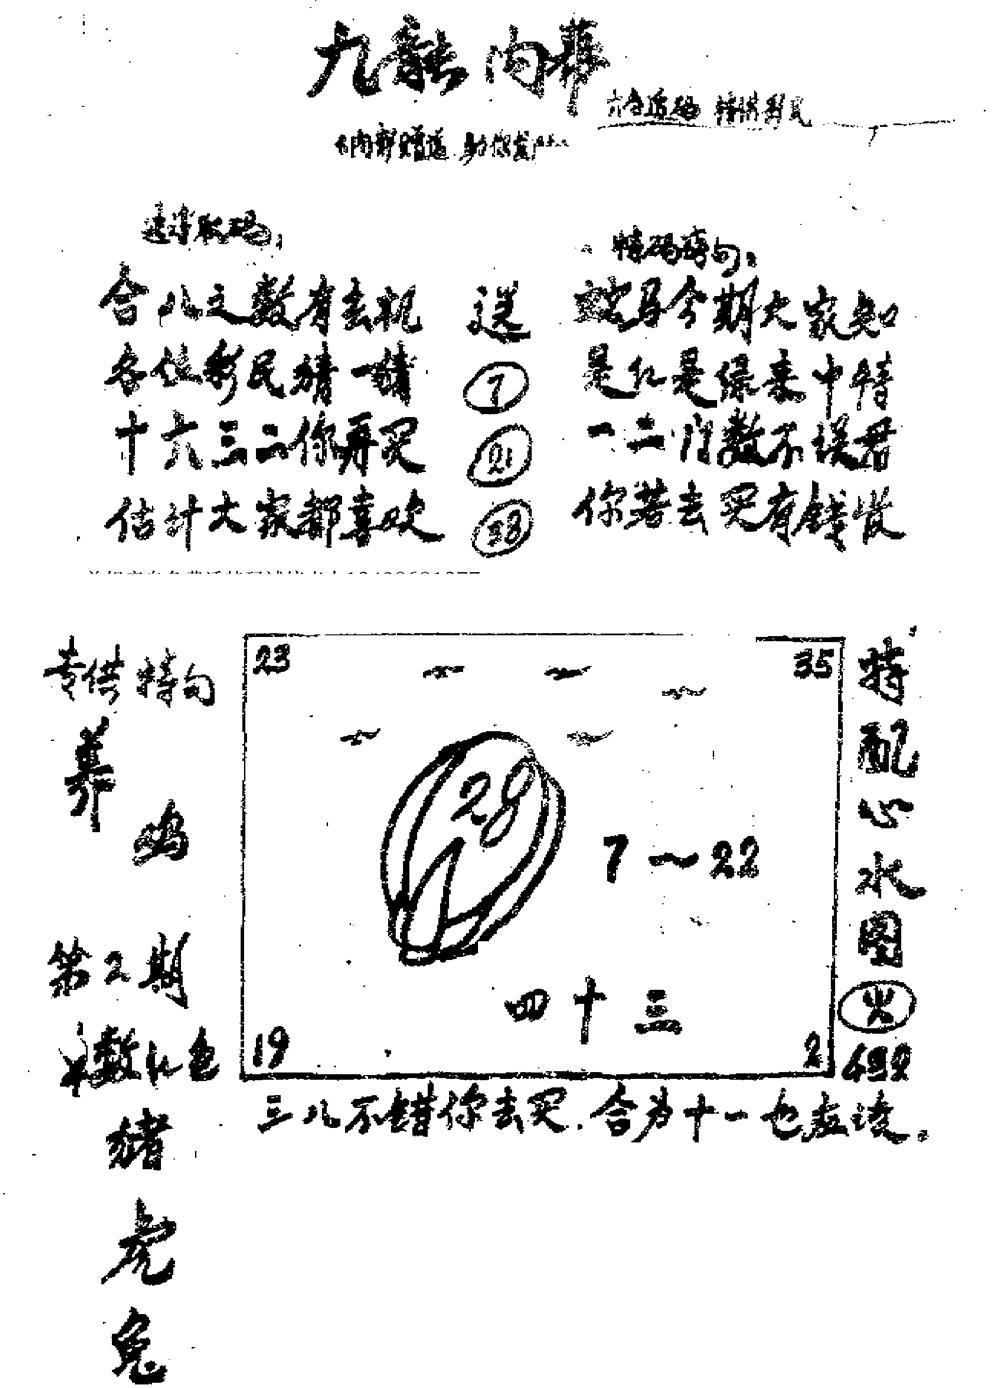 九龙内幕
六合透码 特供彩民
内部赠送 助你发
合八之数有玄机
各位彩民猜一猜
十六三二你再买
估计大家都喜欢
送
7
21
33
特码诗句：
蛇马今期大家知
是红是绿来中特
一二门数不误君
你若去买有钱收
专供特句
养鸡
第2期
单数红色
猪
虎
兔
23
35
28
7～22
四十三
19
2
特配心水图
火
三八不错你去买.合为十一也应该。